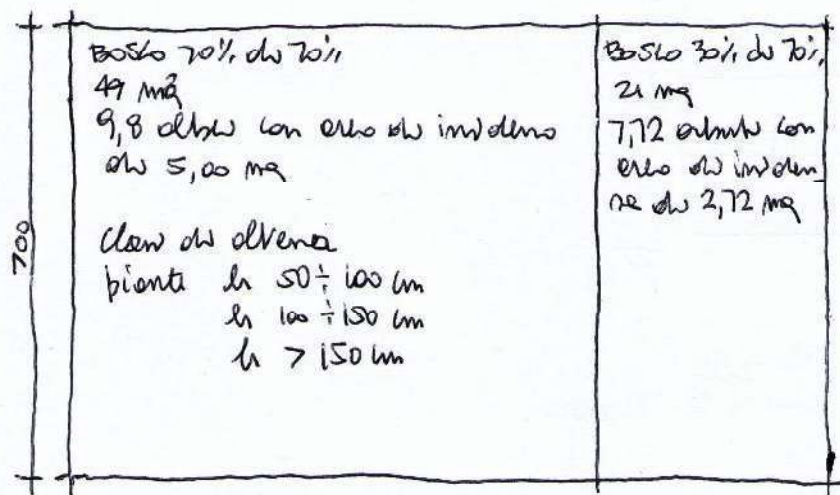 BOSCO 70% di 70%
49 mq
9,8 alberi con area di incidenza
di 5,00 mq
Classi di altezza
piante h 50÷100 cm
h 100÷150 cm
h > 150 cm
BOSCO 30% di 70%
21 mq
7,72 arbusti con
area di inciden
za di 2,72 mq
700